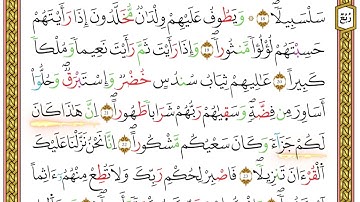 سَلْسَبِيلًا ۝١٨ وَيَطُوفُ عَلَيْهِمْ وِلْدَانٌ مُّخَلَّدُونَ إِذَا رَأَيْتَهُمْ
حَسِبْتَهُمْ لُؤْلُؤًا مَّنثُورًا ۝١٩ وَإِذَا رَأَيْتَ ثَمَّ رَأَيْتَ نَعِيمًا وَمُلْكًا
كَبِيرًا ۝٢٠ عَالِيَهُمْ ثِيَابُ سُندُسٍ خُضْرٌ وَإِسْتَبْرَقٌ وَحُلُّوا
أَسَاوِرَ مِن فِضَّةٍ وَسَقَاهُمْ رَبُّهُمْ شَرَابًا طَهُورًا ۝٢١ إِنَّ هَٰذَا كَانَ
لَكُمْ جَزَاءً وَكَانَ سَعْيُكُم مَّشْكُورًا ۝٢٢ إِنَّا نَحْنُ نَزَّلْنَا عَلَيْكَ
الْقُرْءَانَ تَنزِيلًا ۝٢٣ فَاصْبِرْ لِحُكْمِ رَبِّكَ وَلَا تُطِعْ مِنْهُمْ ءَاثِمًا
ربع